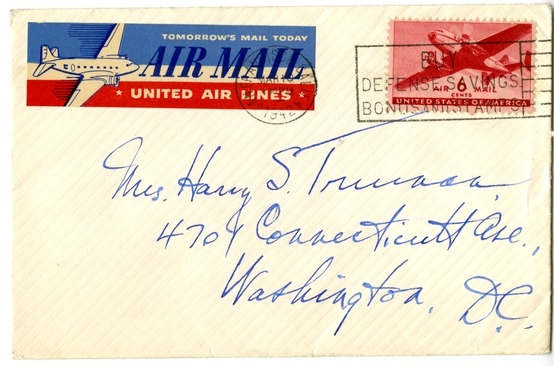 TOMORROW'S MAIL TODAY
AIR MAIL
★ UNITED AIR LINES ★
1942
BUY
DEFENSE SAVINGS
BONDS AND STAMPS
AIR 6 MAIL
CENTS
UNITED STATES OF AMERICA
Mrs. Harry S. Truman,
4701 Connecticutt Ave.,
Washington, D.C.